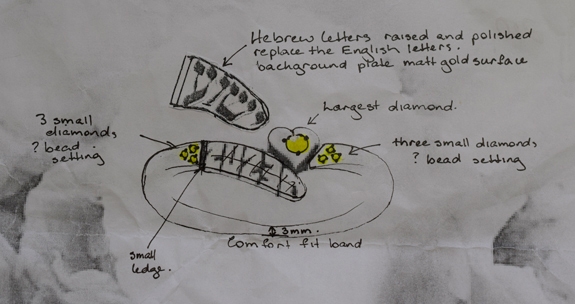 Hebrew letters raised and polished
replace the English letters.
background plate matt gold surface
Largest diamond.
3 small
diamonds
? bead
setting
three small diamonds
? bead setting
3mm.
Comfort fit band
small
ledge.